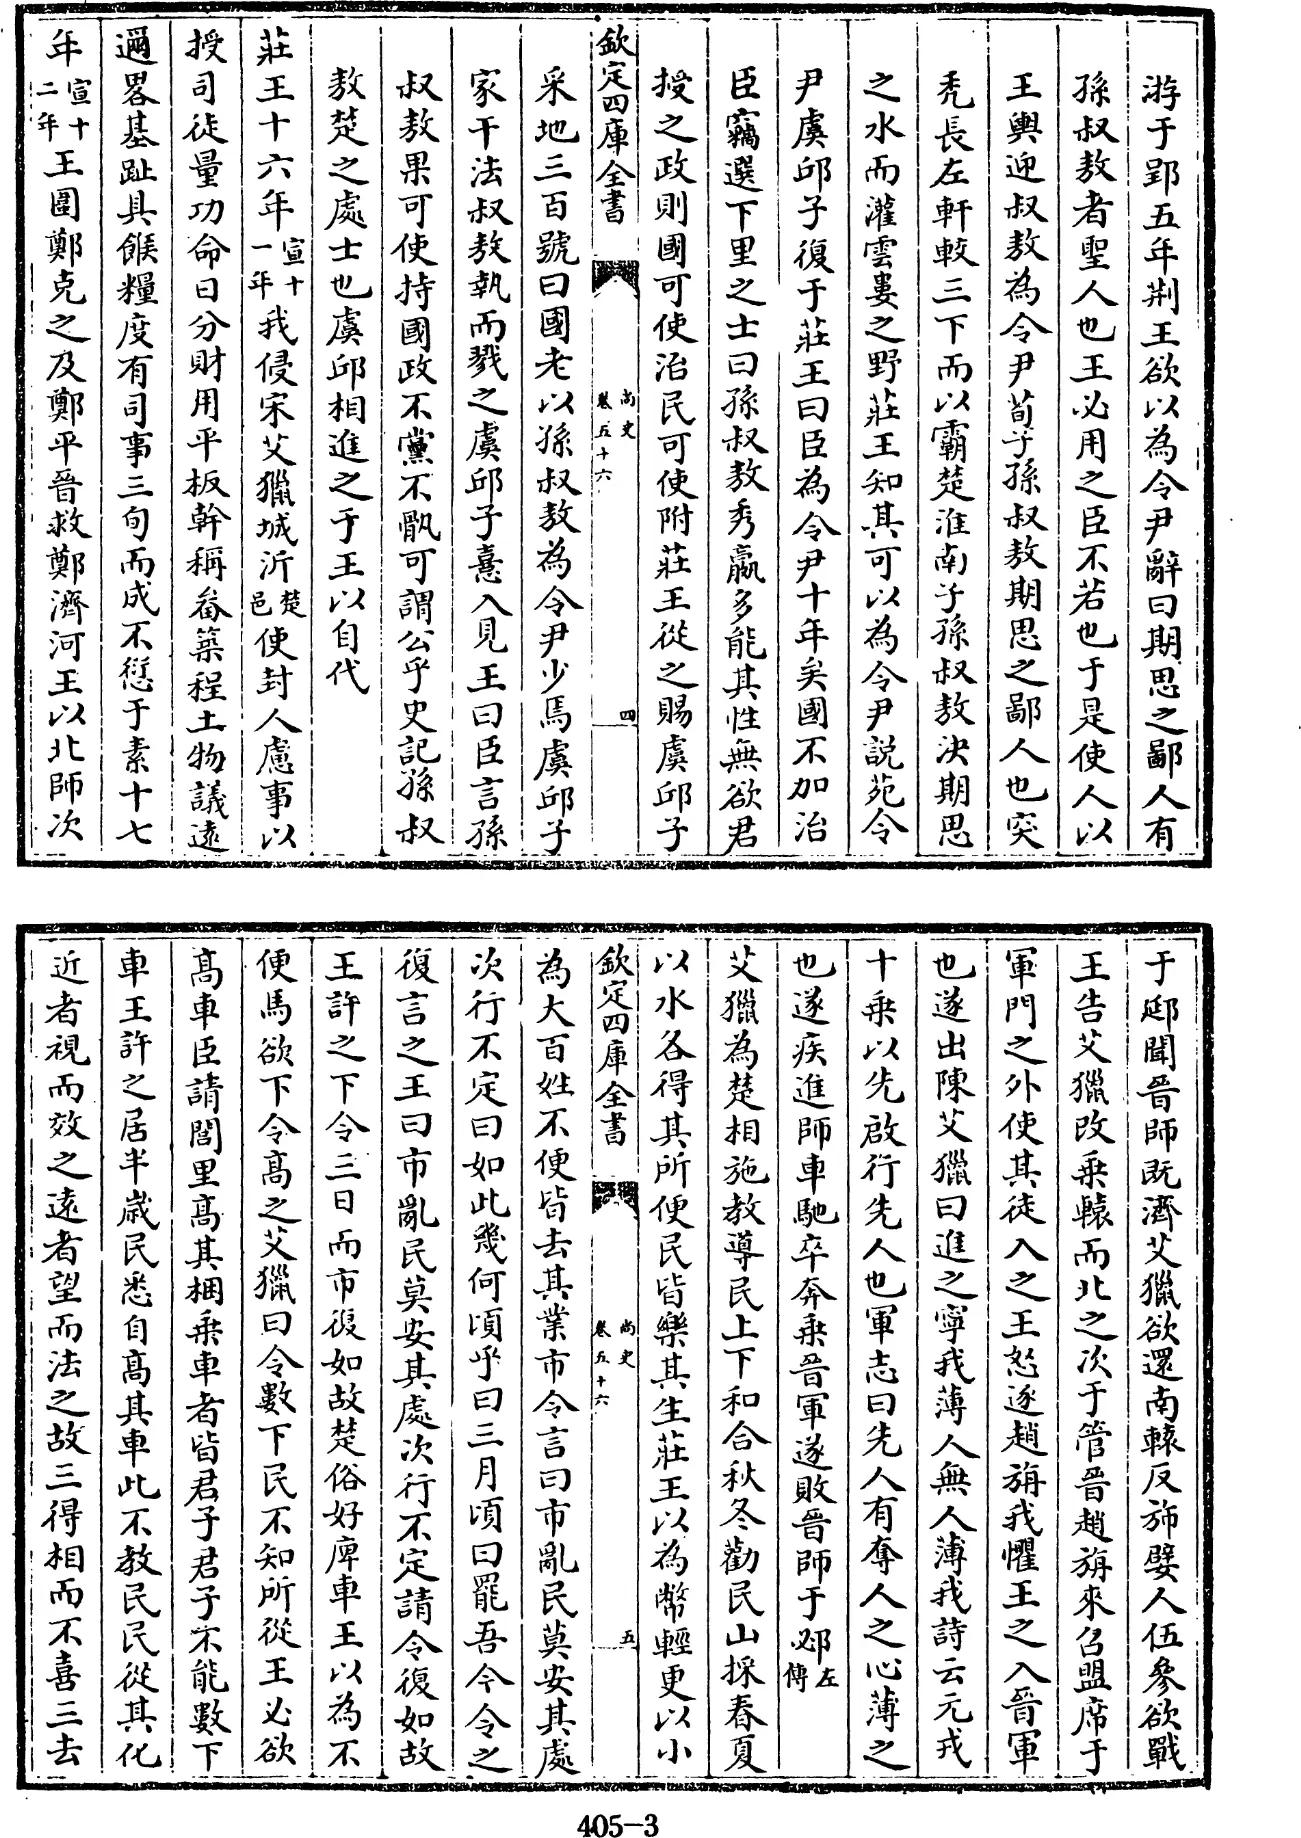 游于郢五年荆王欲以為令尹辭曰期思之鄙人有
孫叔敖者聖人也王必用之臣不若也于是使人以
王輿迎叔敖為令尹荀子孫叔敖期思之鄙人也突
禿長左軒較三下而以霸楚淮南子孫叔敖決期思
之水而灌雲婁之野莊王知其可以為令尹說苑令
尹虞邱子復于莊王曰臣為令尹十年矣國不加治
臣竊選下里之士曰孫叔敖秀羸多能其性無欲君
授之政則國可使治民可使附莊王從之賜虞邱子
欽定四庫全書
尚史
卷五十六
四
采地三百號曰國老以孫叔敖為令尹少焉虞邱子
家干法叔敖執而戮之虞邱子憙入見王曰臣言孫
叔敖果可使持國政不黨不骫可謂公乎史記孫叔
敖楚之處士也虞邱相進之于王以自代
莊王十六年宣十一年我侵宋艾獵城沂楚邑使封人慮事以
授司徒量功命日分財用平板幹稱畚築程土物議逺
邇畧基趾具餱糧度有司事三旬而成不愆于素十七
年宣十二年王圍鄭克之及鄭平晉救鄭濟河王以北師次
于郔聞晉師既濟艾獵欲還南轅反斾嬖人伍參欲戰
王告艾獵改乗轅而北之次于管晉趙旃來召盟席于
軍門之外使其徒入之王怒逐趙旃我懼王之入晉軍
也遂出陳艾獵曰進之寧我薄人無人薄我詩云元戎
十乗以先啟行先人也軍志曰先人有奪人之心薄之
也遂疾進師車馳卒奔乗晉軍遂敗晉師于邲左傳
艾獵為楚相施教導民上下和合秋冬勸民山採春夏
以水各得其所便民皆樂其生莊王以為幣輕更以小
欽定四庫全書
尚史
卷五十六
五
為大百姓不便皆去其業市令言曰市亂民莫安其處
次行不定曰如此幾何頃乎曰三月頃曰罷吾今令之
復言之王曰市亂民莫安其處次行不定請令復如故
王許之下令三日而市復如故楚俗好庳車王以為不
便馬欲下令髙之艾獵曰令數下民不知所從王必欲
髙車臣請閭里髙其梱乗車者皆君子君子不能數下
車王許之居半歲民悉自髙其車此不教民民從其化
近者視而效之逺者望而法之故三得相而不喜三去
405-3